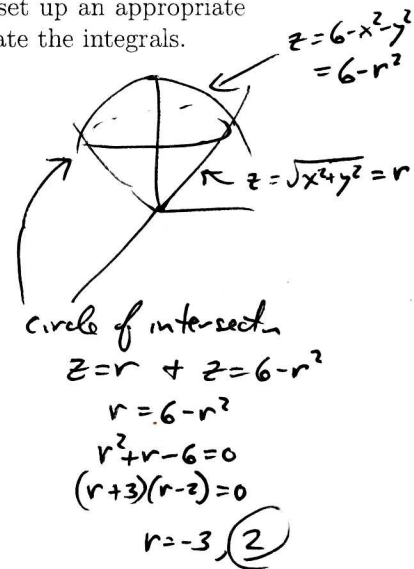 set up an appropriate
ate the integrals.
z = 6-x²-y²
= 6-r²
z = √x²+y² = r
circle of intersectn
z=r + z=6-r²
r = 6-r²
r²+r-6=0
(r+3)(r-2)=0
r=-3, 2